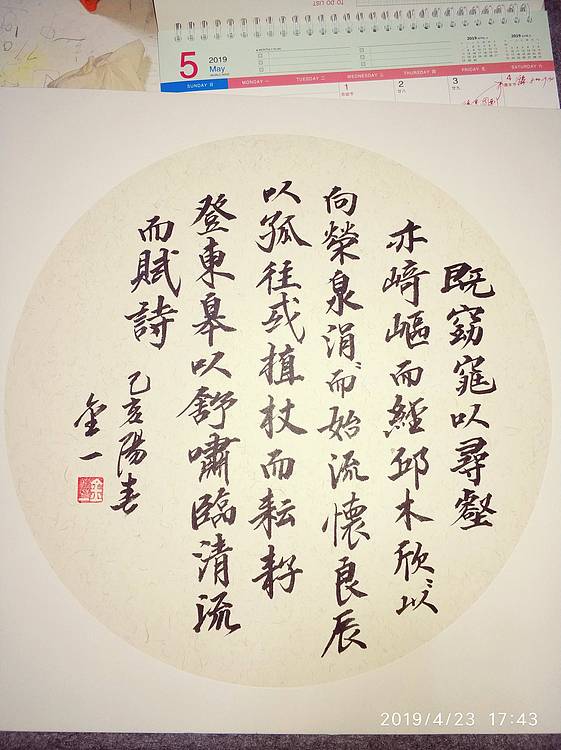 TO DO LIST
5
2019
May
2019
2019
SUNDAY 日
MONDAY 一
TUESDAY 二
WEDNESDAY 三
THURSDAY 四
FRIDAY 五
SATURDAY 六
1
2
3
4
廿八
廿九
既窈窕以尋壑
亦崎嶇而經邱木欣〻以
向榮泉涓〻而始流懷良辰
以孤往或植杖而耘耔
登東皋以舒嘯臨清流
而賦詩
己亥陽春
金一
2019/4/23 17:43